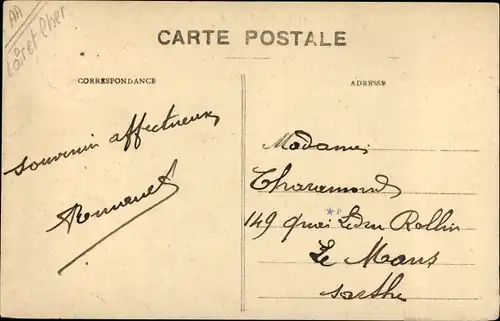 AA
Loir et Cher
CARTE POSTALE
CORRESPONDANCE
ADRESSE
souvenir affectueux
Madame
149 quai Ledru Rollin
Le Mans
Sarthe